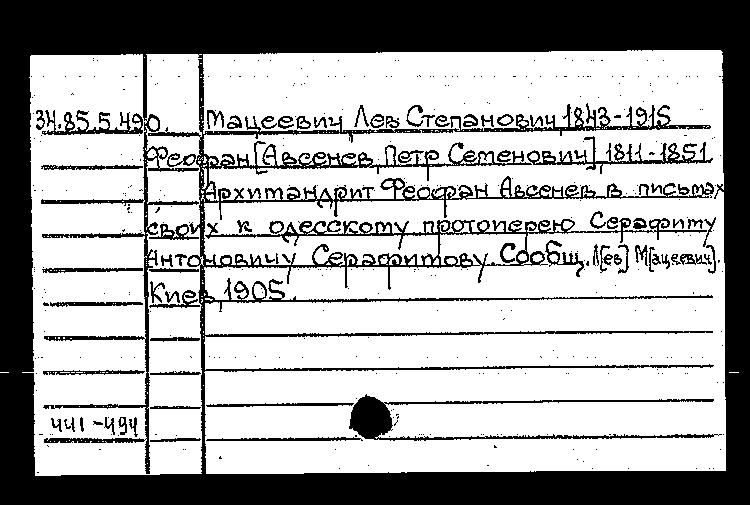 34.85.5.490. Мацеевич, Лев Степанович, 1843-1915
Феофан [Авсенев, Петр Семенович], 1811-1851
Архимандрит Феофан Авсенев в письмах
своих к одесскому протоиерею Серафиму
Антоновичу Серафимову. Сообщ. Л[ев] М[ацеевич].
Киев, 1905.
441-494